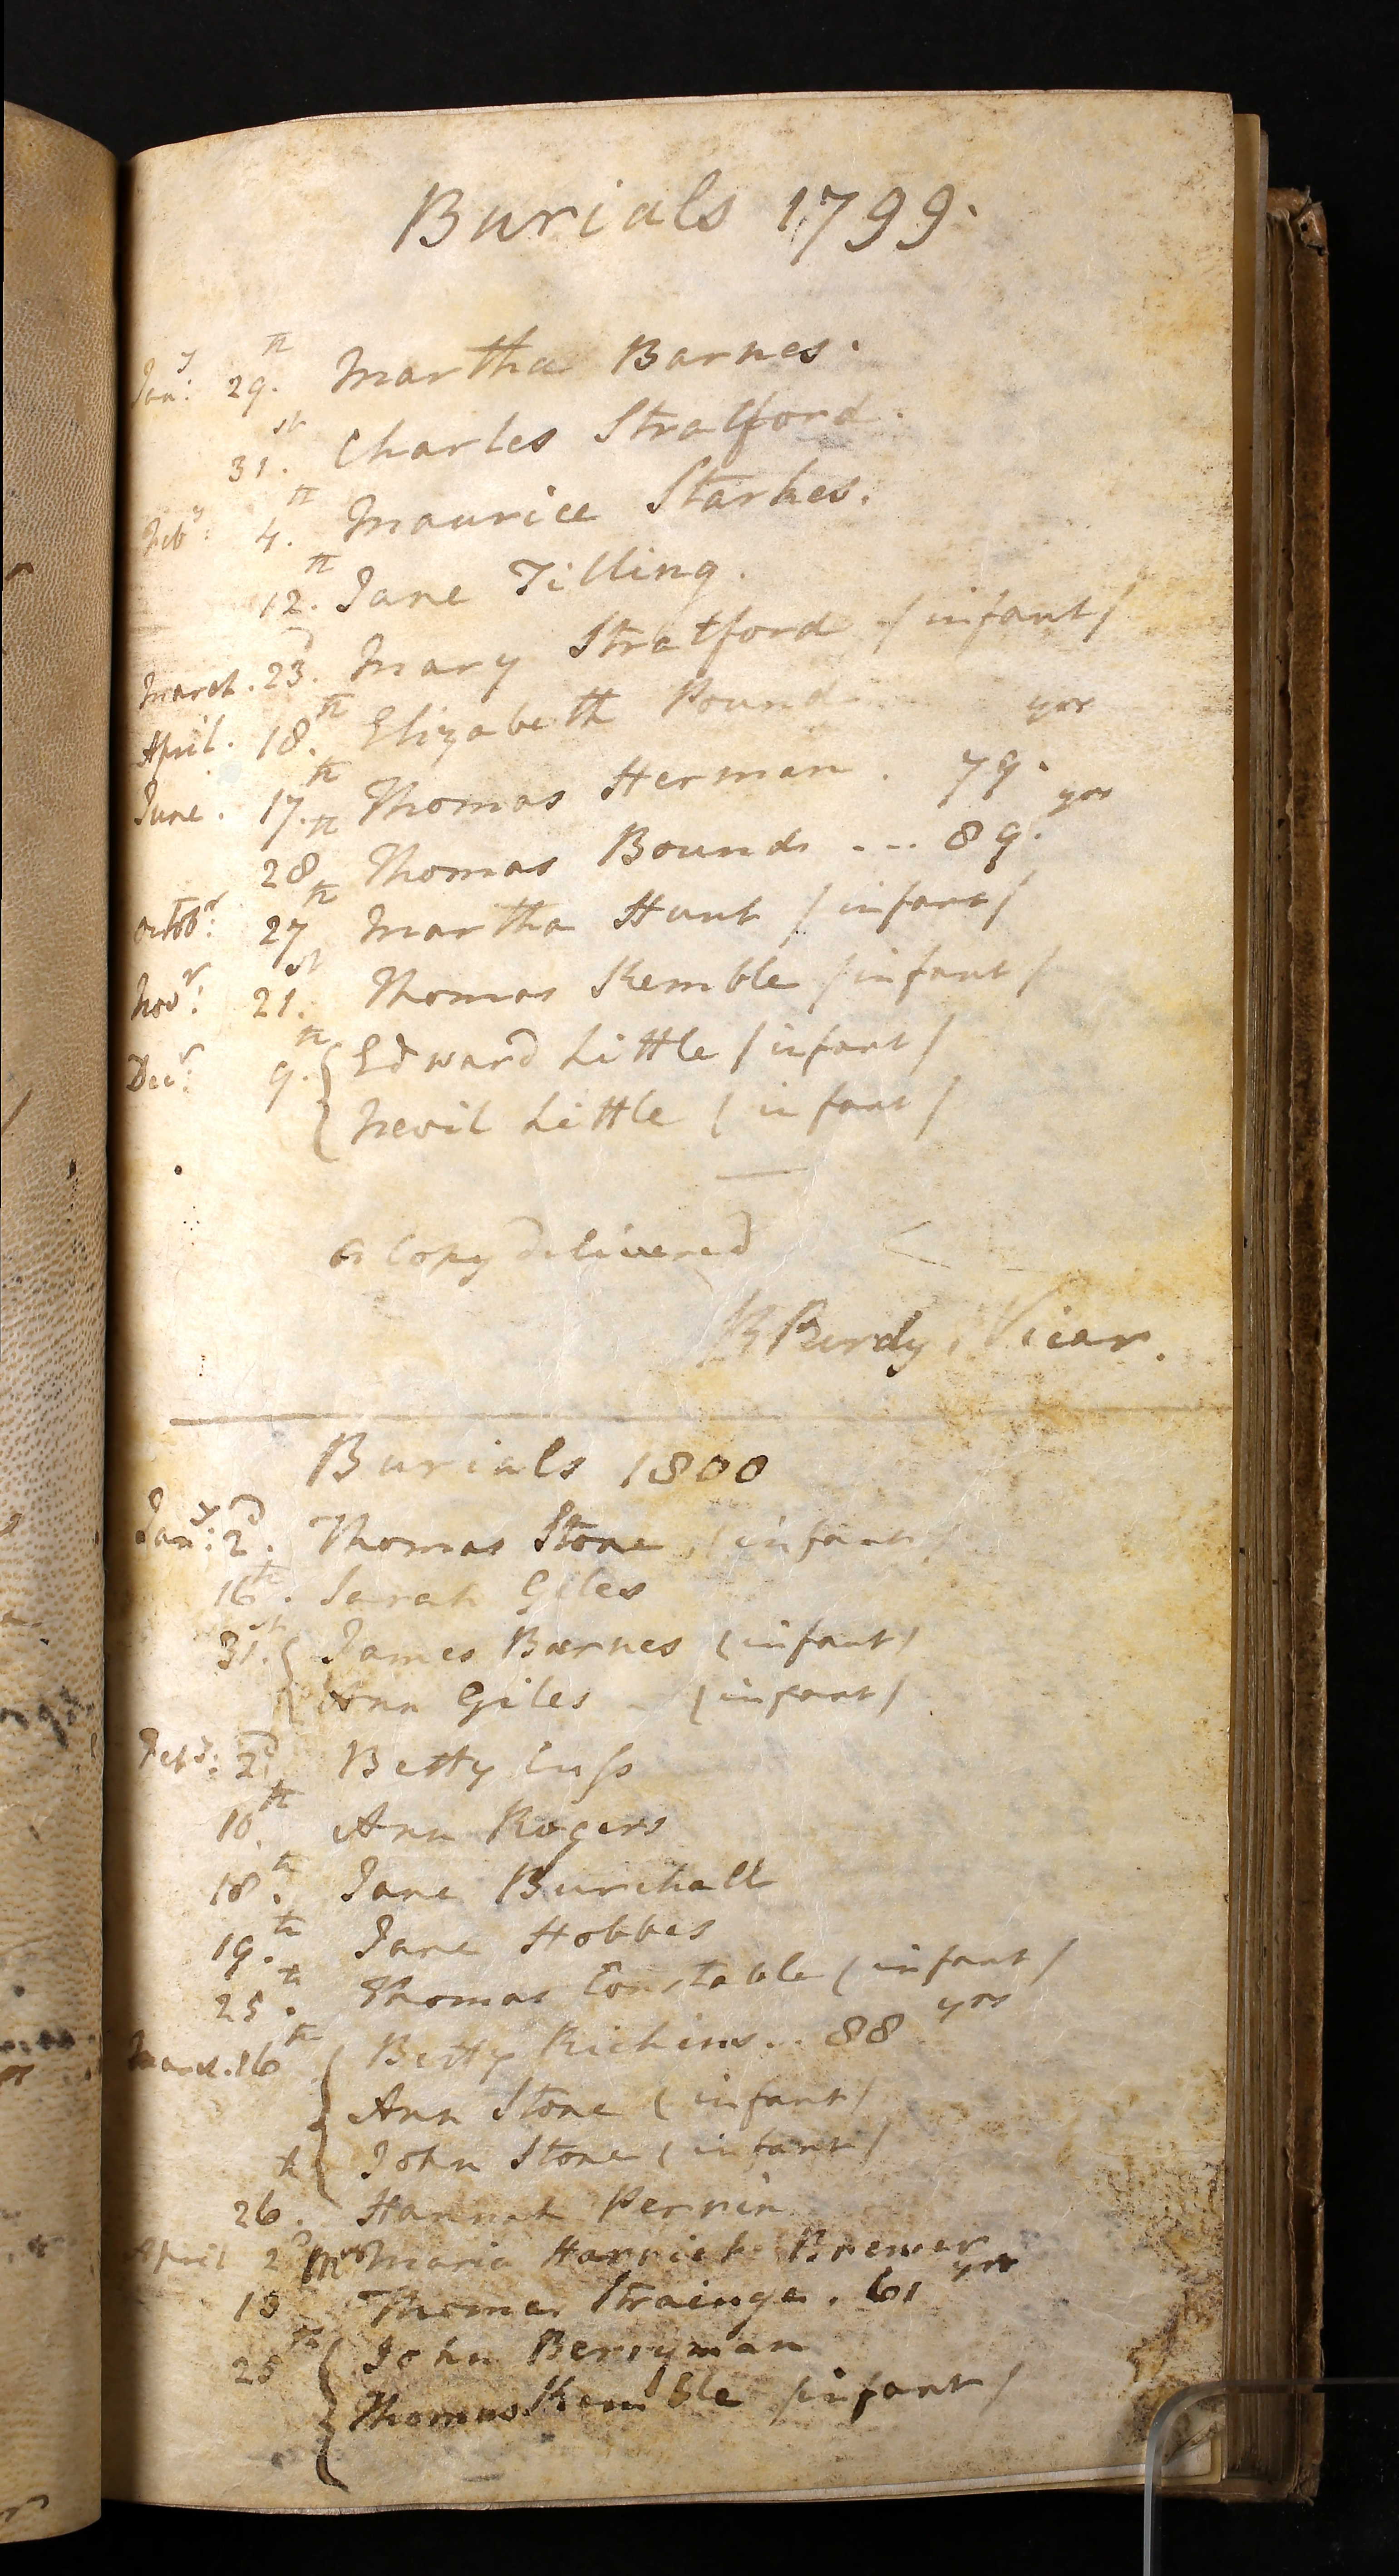 Burials 1799.
Jan:y 29.th Martha Barnes.
31.st Charles Stratford.
Feb:y 4.th Maurice Starkes.
12.th Jane Tilling.
March. 23.d Mary Stratford /infant/
April. 18.th Elizabeth Pound
June. 17.th Thomas Herman. 79. yrs
28th Thomas Bounds ... 89. yrs
Octob:r 27th Martha Hunt /infant/
Nov:r 21.st Thomas Kemble /infant/
Dec:r 9.th { Edward Little /infant/
Nevil Little (infant/
a Copy delivered
R Purdy, Vicar.
Burials 1800
Jan:y 2.d Thomas Stone (infant/
16th. Sarah Giles
31.st { James Barnes (infant/
Ann Giles - (infant/
Feb:y 2d Betty Cuſs
10.th Ann Rogers
18.th Jane Burchall
19.th Jane Hobbes
25.th Thomas Constable (infant/
March. 16th { Betty Richins... 88 yrs
Ann Stone (infant/
John Stone (infant/
26.th Hannah Perrin
April 2d Mrs Maria Harriet Brewer
15 Thomas Strainge. 61 yrs
25th { John Berryman
Thomas Kemble /infant/